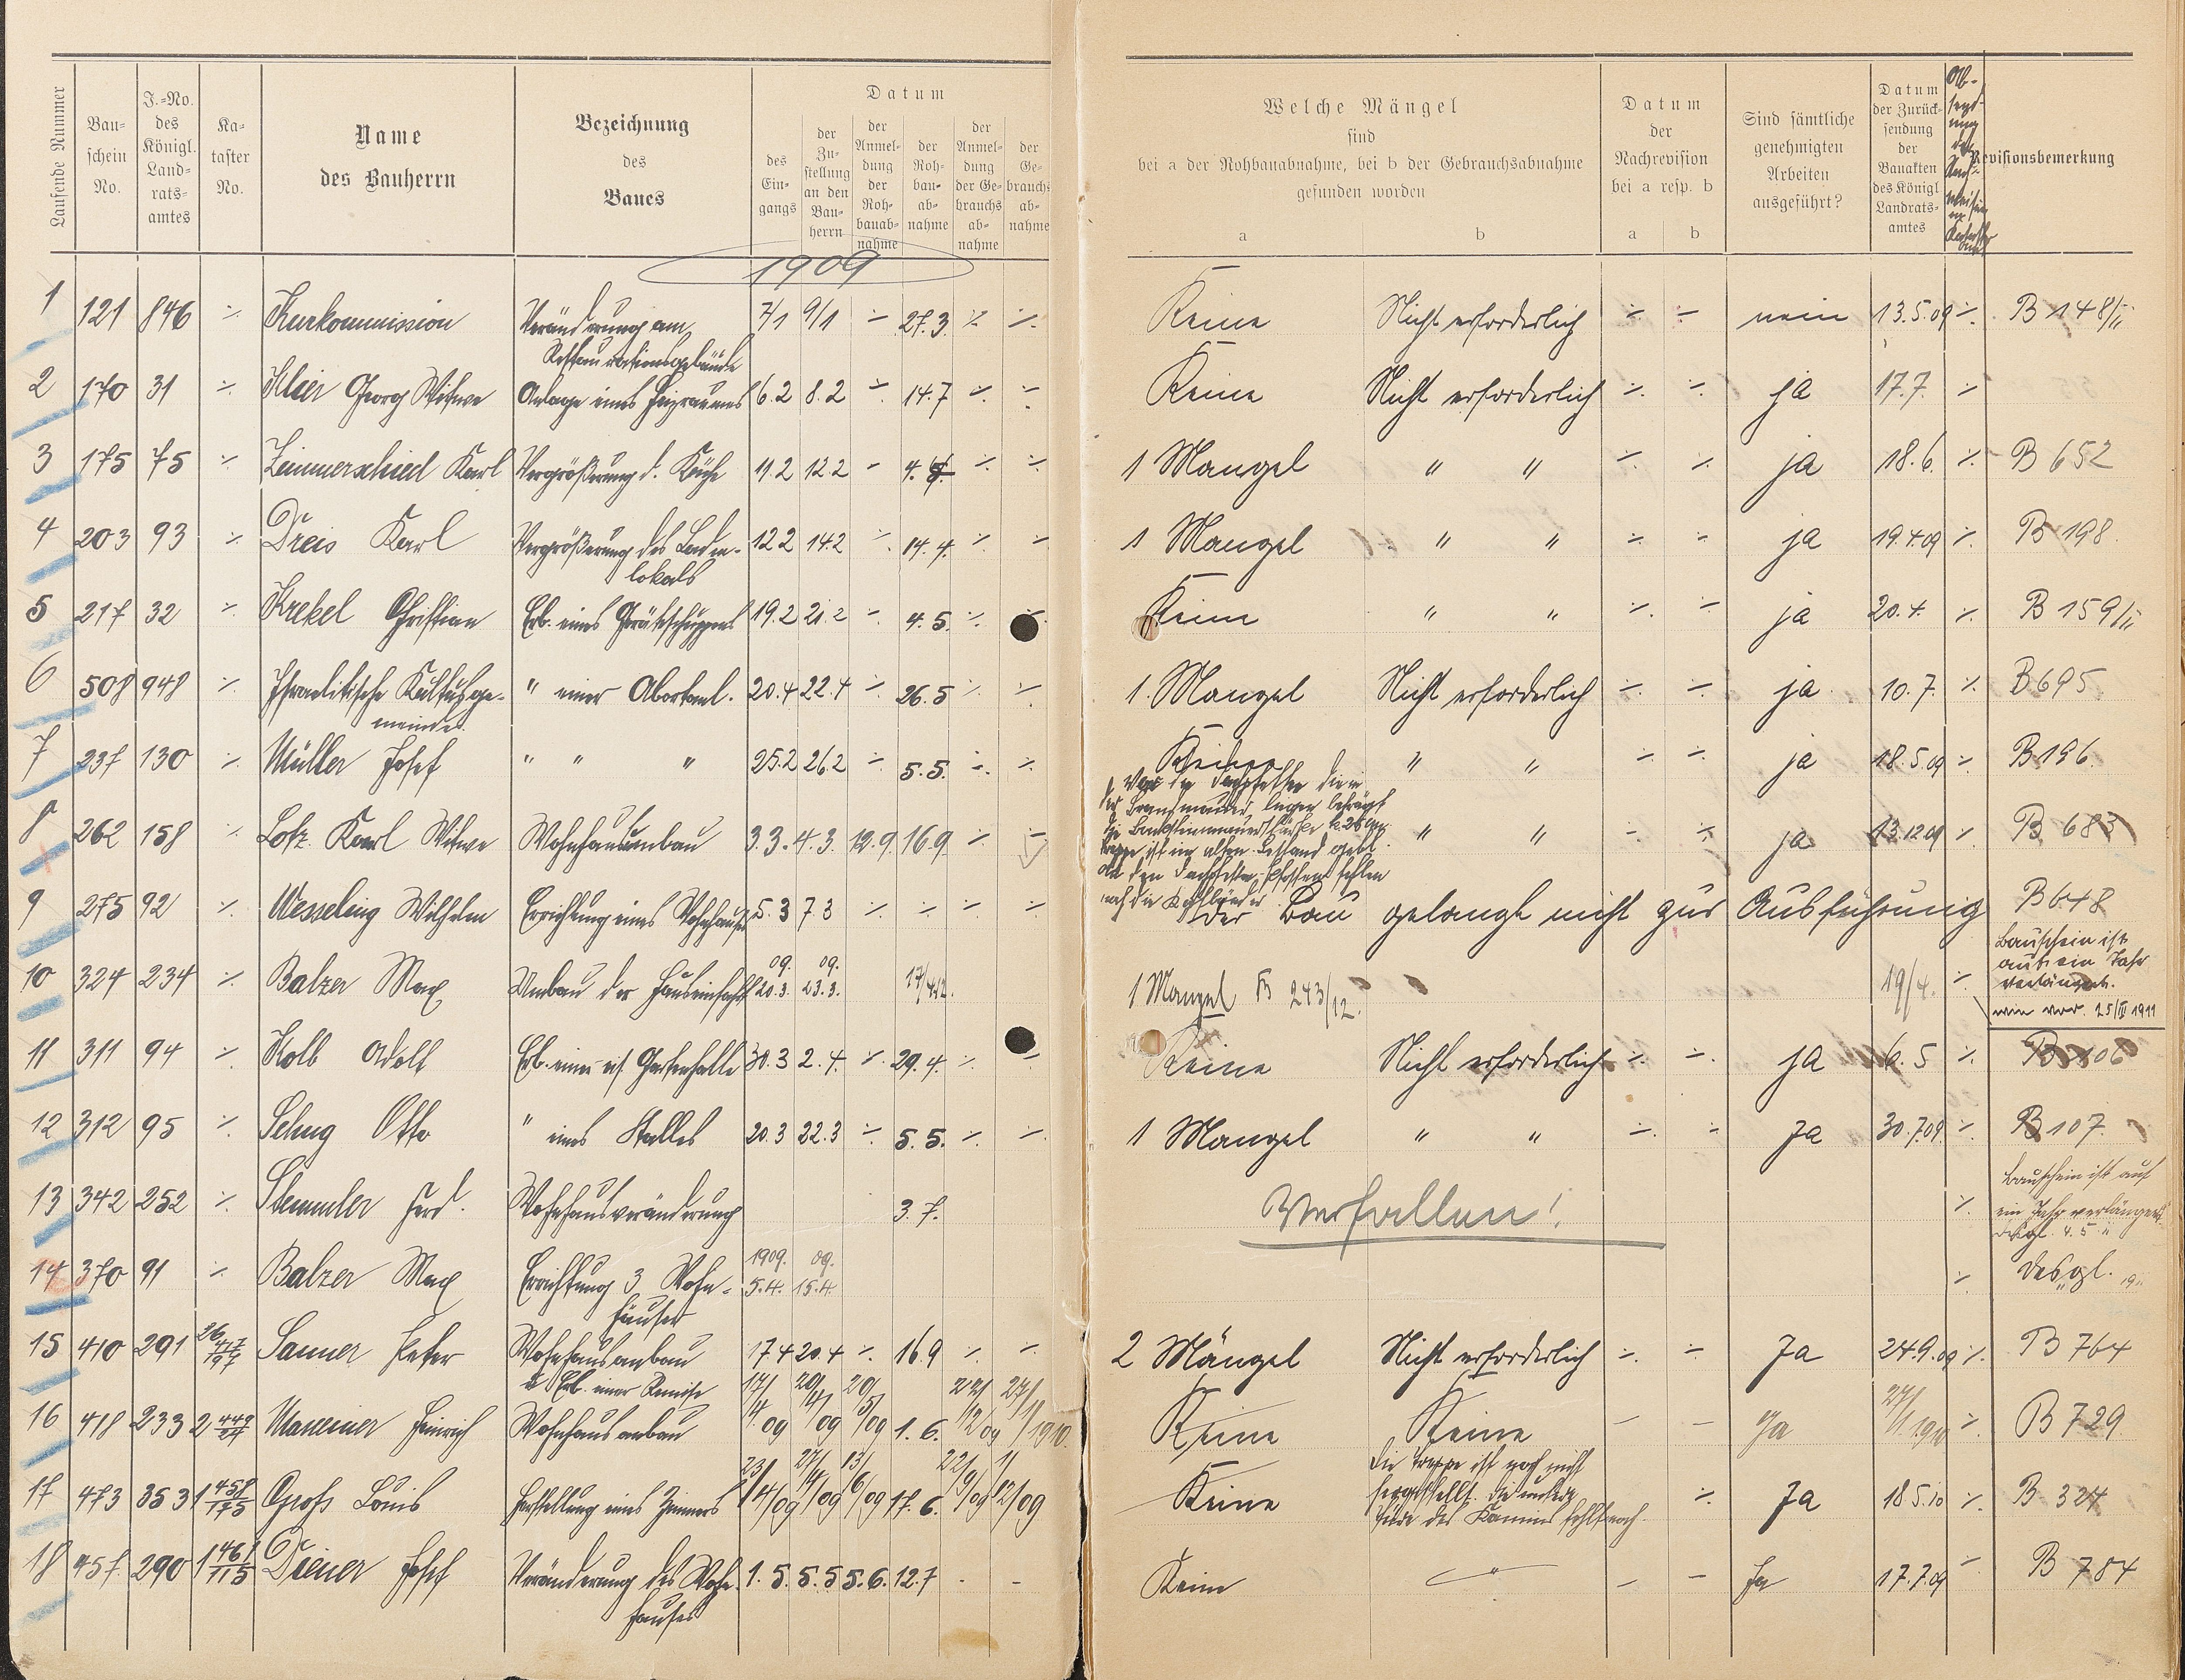 Laufende Nummer
Bau-
schein
No.
J.-No.
des
Königl.
Land-
rats-
amtes
Ka-
taster
No.
Name
des Bauherrn
Bezeichnung
des
Baues
Datum
des
Ein-
gangs
der
Zu-
stellung
an den
Bau-
herrn
der
Anmel-
dung
der
Roh-
bauab-
nahme
der
Roh-
bau-
ab-
nahme
der
Anmel-
dung
der Ge-
brauchs
ab-
nahme
der
Ge-
brauchs
ab-
nahme
Welche Mängel
sind
bei a der Rohbauabnahme, bei b der Gebrauchsabnahme
gefunden worden
a b
Datum
der
Nachrevision
bei a resp. b
a b
Sind sämtliche
genehmigten
Arbeiten
ausgeführt?
Datum
der Zurück-
sendung
der
Bauakten
des Königl.
Landrats-
amtes
Ab-
send-
ung
der
Revisionsbemerkung
1909
1 121 846 ⁒ Kurkommission Veränderung am 7/1 9/1 ⁒ 27.3. ⁒ ⁒ Keine Nicht erforderlich ⁒ ⁒ nein 13.5.09 ⁒ B 148/II
Restaurationsgebäude
2 170 31 ⁒ Klier Georg Witwe Anlage eines Heizraumes 6.2 8.2 ⁒ 14.7 ⁒ ⁒ Keine Nicht erforderlich ⁒ ⁒ ja 17.7. ⁒
3 175 75 ⁒ Zimmerschied Karl Vergrößerung d. Küche 11.2 12.2 - 4. ⁒ ⁒ 1 Mangel " " ⁒ ⁒ ja 18.6. ⁒ B 652
4 203 93 ⁒ Dreis Karl Vergrößerung des Laden- 12.2 14.2 ⁒ 14.4. ⁒ ⁒ 1 Mangel " " ⁒ ⁒ ja 19.4.09 ⁒ B 198.
lokals
5 217 32 ⁒ Krekel Christian Erb. eines Geräteschuppens 19.2 21.2 ⁒ 4.5. ⁒ ⁒ Keine " " ⁒ ⁒ ja 20.4. ⁒ B 159/II
6 508 948 ⁒ Israelitische Kultusge- " einer Abortanl. 20.4 22.4 ⁒ 26.5 ⁒ ⁒ 1. Mangel Nicht erforderlich ⁒ ⁒ ja 10.7. ⁒ B 695
meinde
7 237 130 ⁒ Müller Josef " " " 25.2 26.2 ⁒ 5.5. ⁒ ⁒ Keine " " ⁒ ⁒ ja 18.5.09 ⁒ B 196.
8 262 158 ⁒ Lotz Karl Witwe Wohnhausumbau 3.3. 4.3. 12.9. 16.9. ⁒ ⁒ " " ⁒ ⁒ ja 13.12.09 ⁒ B 683
9 275 92 ⁒ Wesseling Wilhelm Errichtung eines Wohnhauses 5.3 7.3 ⁒ ⁒ ⁒ ⁒ der Bau gelangt nicht zur Ausführung B 648
10 324 234 ⁒ Balzer Max Umbau der Hauseinfahrt 09. 20.3. 09. 23.3. 17/4.12. 1 Mangel B 243/12. 19/4. ⁒ Bauschein ist
auf ein Jahr
verlängert.
wie vor. 25/III 1911
11 311 94 ⁒ Kolb Adolf Erb. einer Gartenhalle 30.3 2.4. ⁒ 29.4. ⁒ ⁒ Keine Nicht erforderlich ⁒ ⁒ ja 6.5 ⁒ B 106
12 312 95 ⁒ Schug Otto " eines Stalles 20.3 22.3 ⁒ 5.5. ⁒ ⁒ 1 Mangel " " ⁒ ⁒ Ja 30.7.09 ⁒ B 107.
13 342 252 ⁒ Stemmler Ferd. Wohnhausveränderung 3.7. Verfallen! ⁒ Bauschein ist auf
ein Jahr verlängert
14 370 91 ⁒ Balzer Max Errichtung 3 Wohn- 1909. 5.4. 09. 15.4. ⁒ Desgl.
häuser
15 410 291 Sauner Peter Wohnhausanbau 17.4 20.4 ⁒ 16.9 ⁒ ⁒ 2 Mängel Nicht erforderlich ⁒ ⁒ Ja 24.9.09 ⁒ B 764
u. Erb. einer Remise
16 418 233 Heinrich Wohnhausanbau 17/4 09 20/4 09 20/5 09 1.6. 22/12 09 27/1 1910. Keine Keine - - Ja 27/1 1910 ⁒ B 729
17 473 353 Groß Louis Herstellung eines Zimmers 23/4 09 27/4 09 13/6 09 17.6. 22/9 09 1/12 09 Keine Die Treppe ist noch nicht
hergestellt. Die
des Kamins fehlt noch. ⁒ Ja 18.5.10 ⁒ B 324
18 457 290 Diener Josef Veränderung des Wohn- 1.5. 5.5 5.6. 12.7 - - Keine " - - Ja 17.7.09 - B 784
hauses